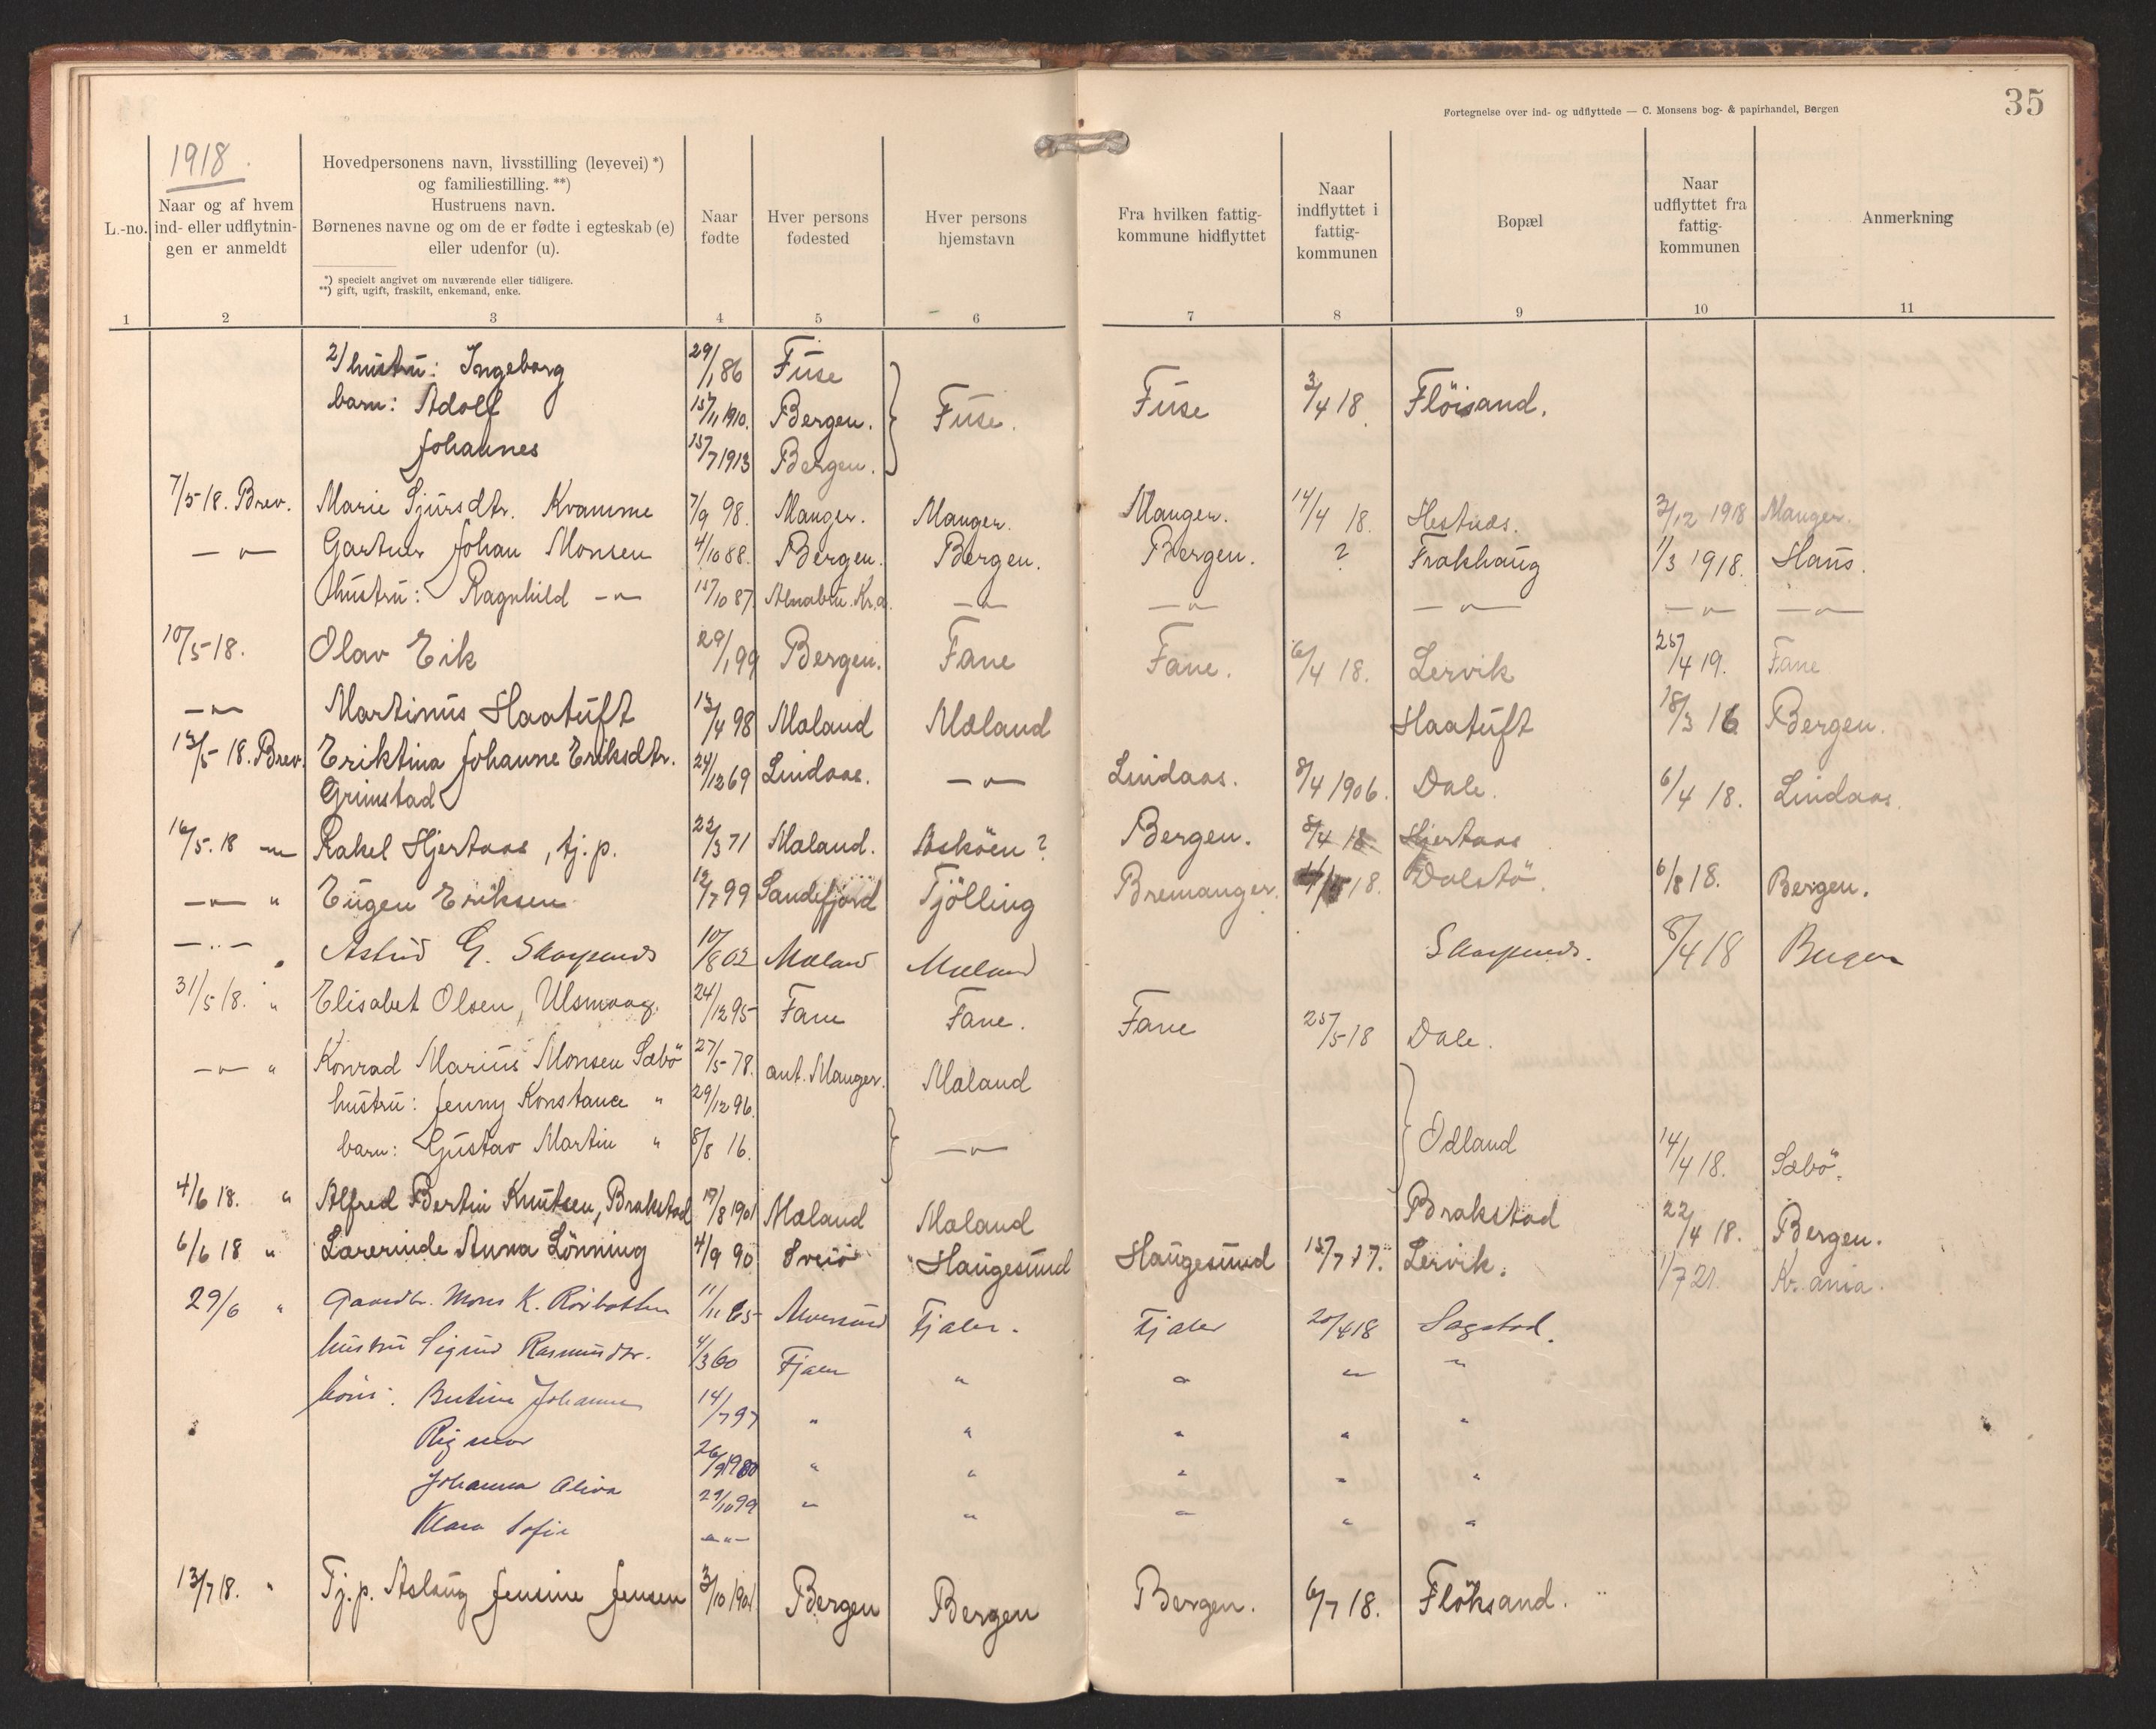 Fortegnelse over ind- og udflyttede — C. Monsens bog- & papirhandel, Bergen
35
1918.
L.-no.
Naar og af hvem ind- eller udflytningen er anmeldt
Hovedpersonens navn, livsstilling (levevei) *)
og familiestilling. **)
Hustruens navn.
Børnenes navne og om de er fødte i egteskab (e)
eller udenfor (u).
*) specielt angivet om nuværende eller tidligere.
**) gift, ugift, fraskilt, enkemand, enke.
Naar fødte
Hver persons fødested
Hver persons hjemstavn
Fra hvilken fattigkommune hidflyttet
Naar indflyttet i fattigkommunen
Bopæl
Naar udflyttet fra fattigkommunen
Anmerkning
1 2 3 4 5 6 7 8 9 10 11
2/ hustru: Ingeborg 29/1 86 Fuse Fuse. Fuse 3/4 18. Flöisand.
barn: Adolf 15/11 1910. Bergen.
Johannes 15/7 1913 Bergen.
7/5 18. Brev. Marie Sjursdtr. Kvamme 7/9 98. Manger. Manger. Manger. 14/4 18. Hestnes. 3/12 1918 Manger.
— " — Gartner Johan Monsen 4/10 88. Bergen. Bergen. Bergen. ? Frakhaug 1/3 1918. Haus.
hustru: Ragnhild — " — 15/10 87. Alnabru. Kr.a. — " — — " — — " — — " — — " —
10/5 18. Olav Eik 29/1 99 Bergen. Fane Fane. 6/4 18. Lervik 25/4 19. Fane
— " — Martinus Haatuft 13/4 98 Mæland Mæland Haatuft 18/3 16 Bergen.
13/5 18. Brev. Eriktina Johanne Eriksdtr. 24/12 69 Lindaas. — " — Lindaas. 8/4 1906. Dale. 6/4 18. Lindaas.
Grimstad
16/5. 18 — " — Rakel Hjertaas, tj.p. 22/3 71 Mæland. Askøen? Bergen. 8/4 18 Hjertaas
— " — " Eugen Eriksen 12/7 99 Sandefjord Tjölling Bremanger. 18. Dalstö. 6/8 18. Bergen.
— " — Astrid G. 10/8 02 Mæland Mæland 8/4 18 Bergen
31/5 18. " Elisabet Olsen, Ulsmaag. 24/12 95 Fane Fane. Fane 25/5 18 Dale.
— " — " Konrad Marius Monsen Sæbö 27/5 78. ant. Manger. Mæland
hustru: Jenny Konstance " 29/12 96.
barn: Gustav Martin " 8/8 16. — " — Odland 14/4 18. Sæbö.
4/6 18. " Alfred Bertin Knutsen, Brakstad 19/8 1901 Mæland Mæland Brakstad 22/4 18. Bergen.
6/6 18 " Lærerinde Anna Lönning 4/9 90 Sveiö Haugesund Haugesund 15/7 17. Lervik. 1/7 21. Kr.ania.
29/6 " Gaardbr. Mons K. Rörbotten 11/11 65 Alversund Fjaler. Fjaler 20/4 18 Sagstad.
hustru Sigrid Rasmusdtr. 4/3 60 Fjaler " " " "
börn: Bertine Johanne 14/7 97 " " " " "
Rigmor 26/9 1900 " " " " "
Johanna Oliva 29/10 99 " " " " "
Klara Sofie — " —
13/7 18. " Tj.p. Aslaug Jensine Jensen 3/10 1901 Bergen Bergen Bergen. 6/7 18. Flöksand.